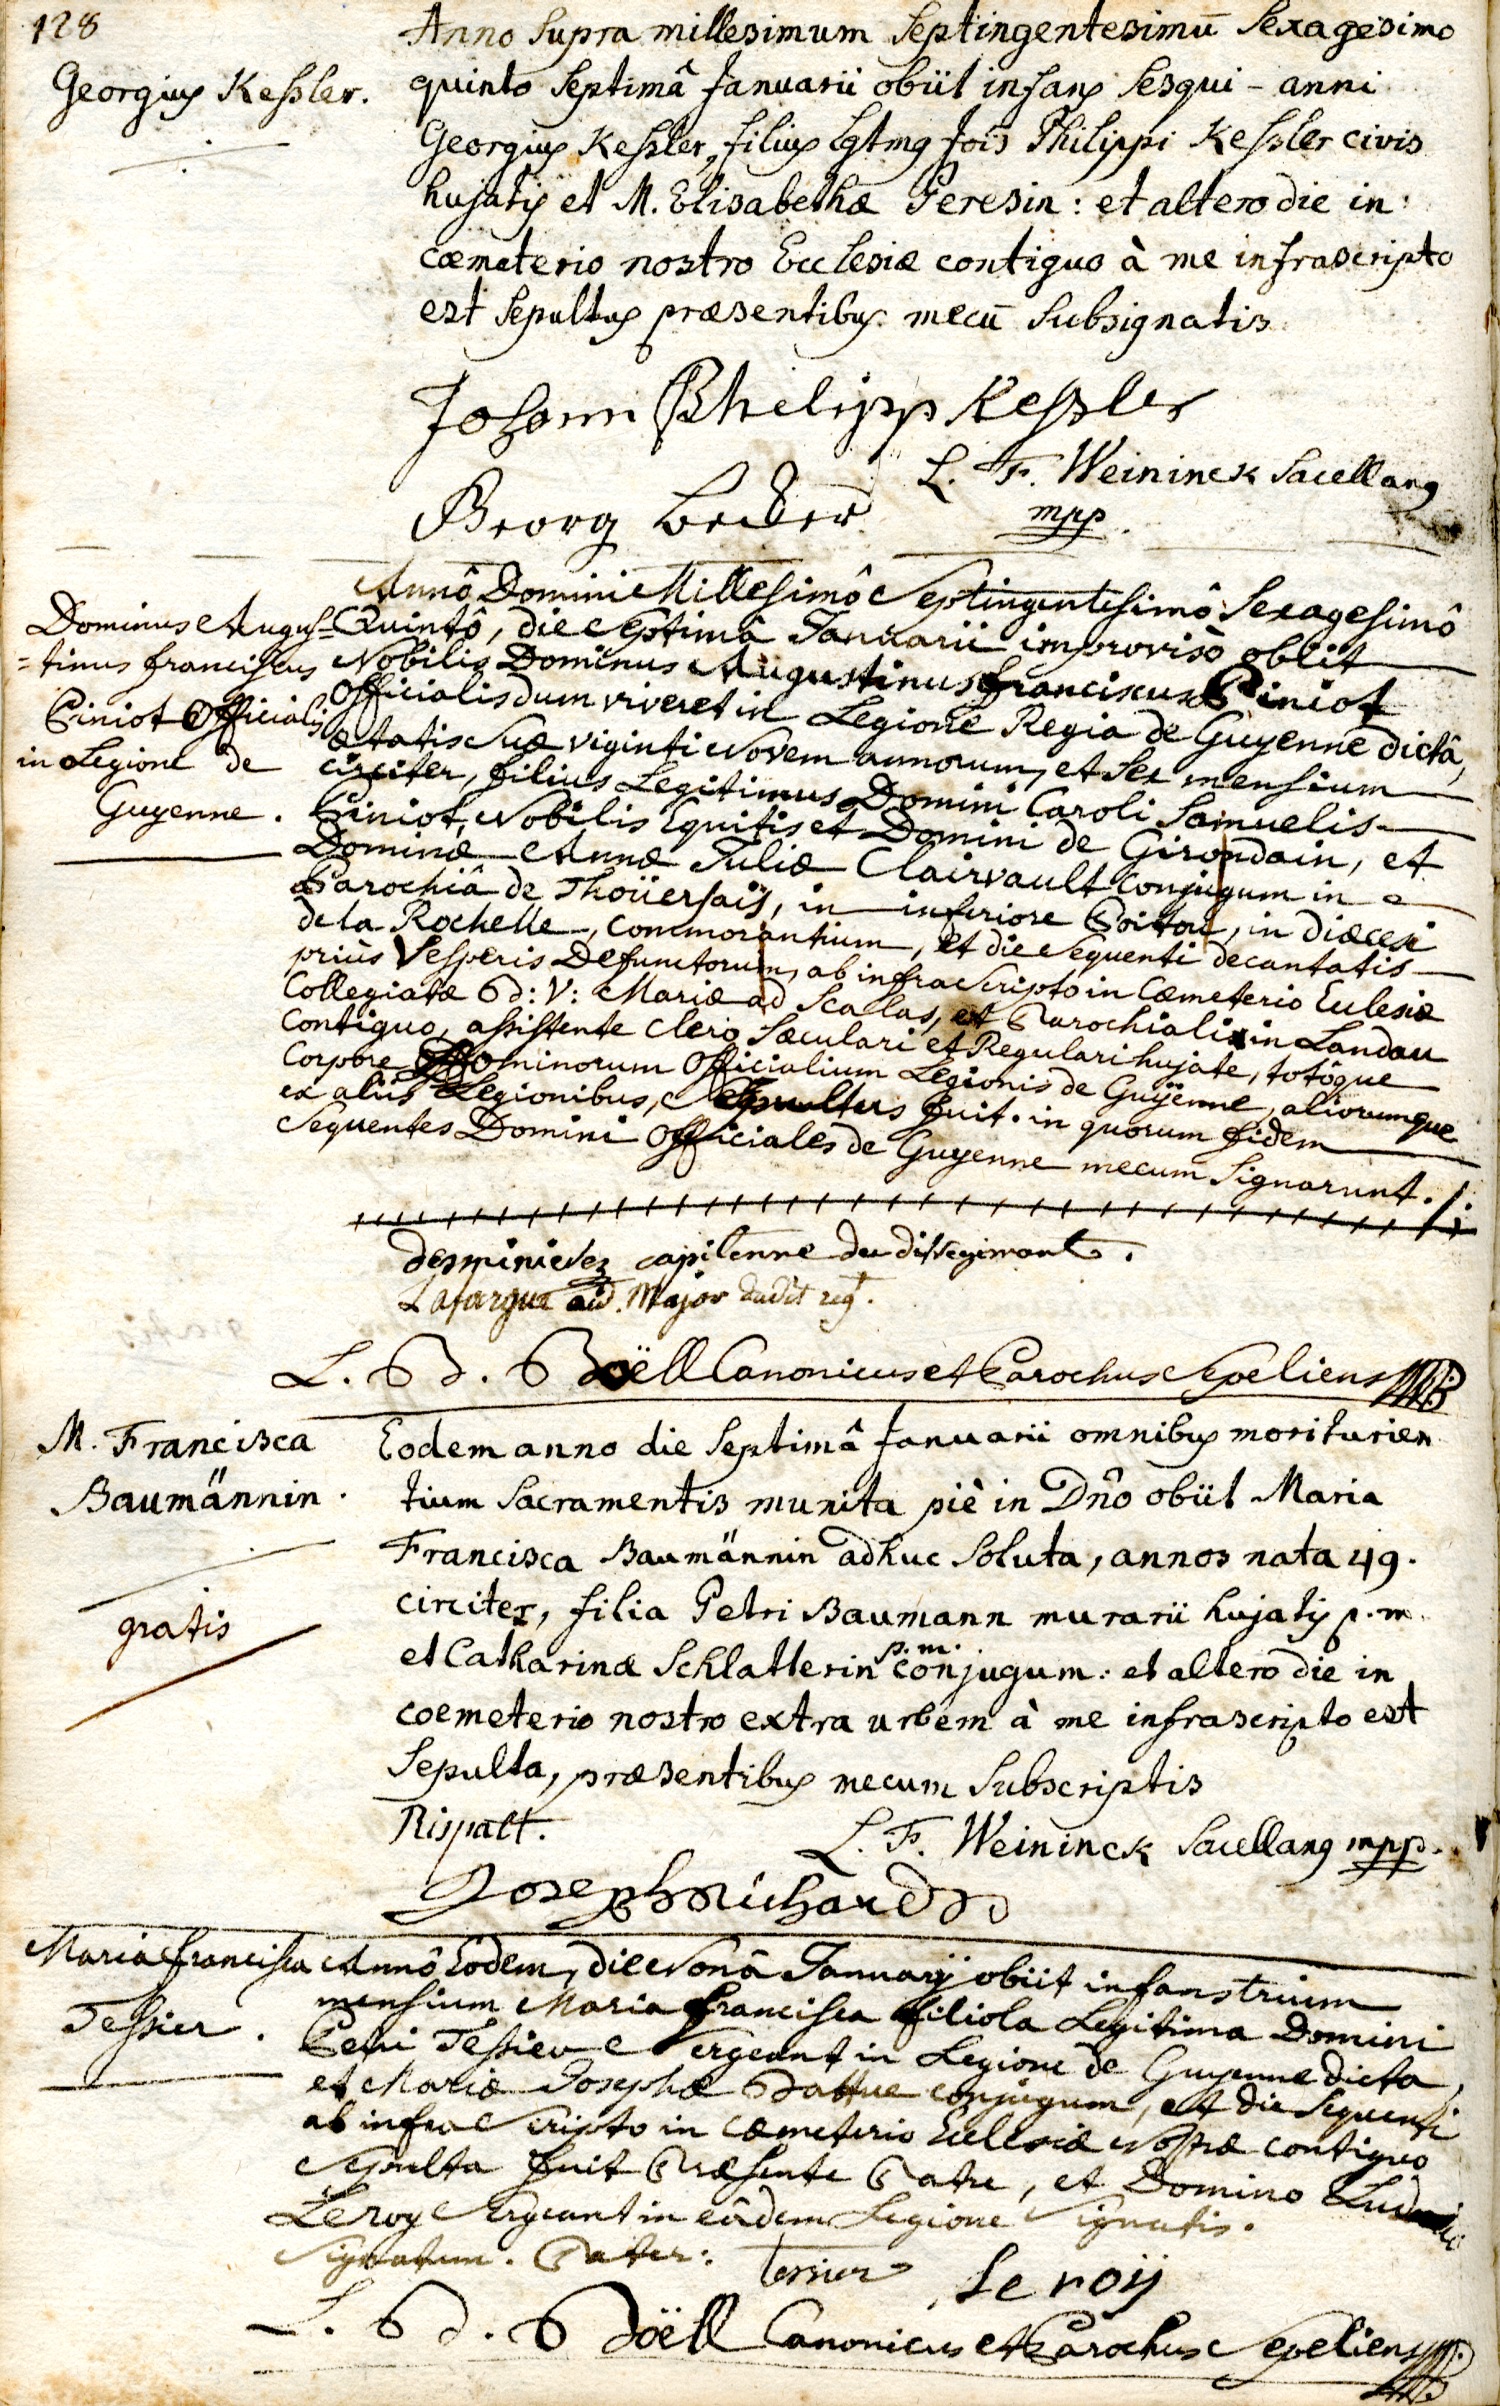 128
Georgius Kessler.
Anno supra millesimum septingentesimū sexagesimo
quinto septimâ Januarii obiit infans sesqui-anni
Georgius Kessler, filius lgtmg Jois Philippi Kessler civis
hujatis et M. Elisabethæ Peresin: et altero die in
cœmeterio nostro Ecclesiæ contiguo à me infrascripto
est sepultus præsentibus mecū subsignatis
Johann Philipp Kessler
L. F. Weininck sacellang
mpp.
Georg Becker
Dominus Augus=
=tinus franciscus
Piniot Officialis
in Legione de
Guyenne.
Annô Domini Millesimô Septingentesimô Sexagesimô
Quintô, die Septimâ Januarii improvisò obiit
Nobilis Dominus Augustinus franciscus Piniot
Officialis dum viveret in Legione Regia de Guyenne dictâ,
ætatis suæ viginti novem annorum, et sex mensium
circiter, filius Legitimus Domini Caroli Samuelis
Piniot, Nobilis Equitis et Domini de Girondain, et
Dominæ Annæ Juliæ Clairvault conjugum in
Parochiâ de Thoüersais, in inferiore Poitou, in diœcesi
de la Rochelle, commorantium, et die sequenti decantatis
priùs Vesperis Defunctorum, ab infrascripto in Cæmeterio Eclesiæ
Collegiatæ B: V: Mariæ ad Scalas, et Parochialis in Landau
Contiguo, assistente Clero Sæculari et Regulari hujate, totôque
Corpore Dominorum Officialium Legionis de Guÿenne, aliorumque
ex aliis Legionibus, Sepultus fuit. in quorum fidem
Sequentes Domini Officiales de Guyenne mecum Signarunt.
capitenne du
Lafargue aid. Major dudit regt.
L. B. Boëll Canonicus et Parochus Sepeliens
M. Francisca
Baumännin.
gratis
Eodem anno die septimâ Januarii omnibus moriturien
tium sacramentis munita piè in Dño obiit Maria
Francisca Baumännin adhuc soluta, annos nata 49.
circiter, filia Petri Baumann murarii hujatis p.m.
et Catharinæ Schlatterin p.m. conjugum: et altero die in
coemeterio nostro extra urbem à me infrascripto est
sepulta, præsentibus mecum subscriptis
Rispalt.
L. F. Weininck sacellang mpp.
Joseph Richard
Maria francisca
Tessier.
Annô Eôdem, die Nonâ Januarij obiit infans trium
mensium Maria francisca filiola Legitima Domini
Petri Tessier Sergeant in Legione de Guyenne dicta,
et Mariæ Josephæ conjugum, et die sequenti
ab infra Scripto in Cæmeterio Ecclesiæ Nostræ contiguo
Sepulta fuit Præsente Patre, et Domino
Leroy Sergeant in eâdem Legione Signatis.
Signatum. Pater:
Tessier
Le roij
L. B. Boëll Canonicus et Parochus Sepeliens